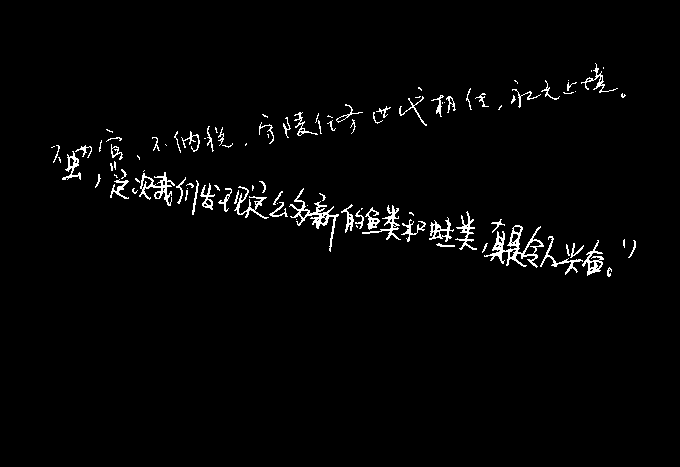 不为官、不纳税，守陵任务世代相传，永无止境。
虫，这次我们发现这么多新的鱼类和蛙类，真是令人兴奋。”